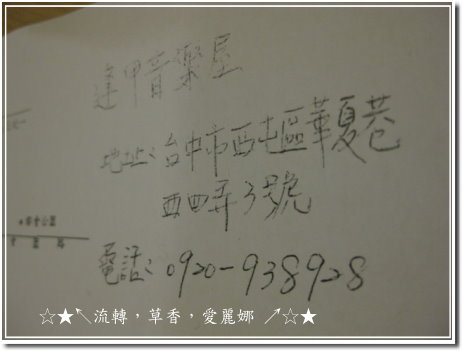 逢甲音樂屋
地址:台中市西屯區華夏巷
西四弄3號
電話:0920-938928
☆★↖流轉,草香,愛麗娜 ↗☆★